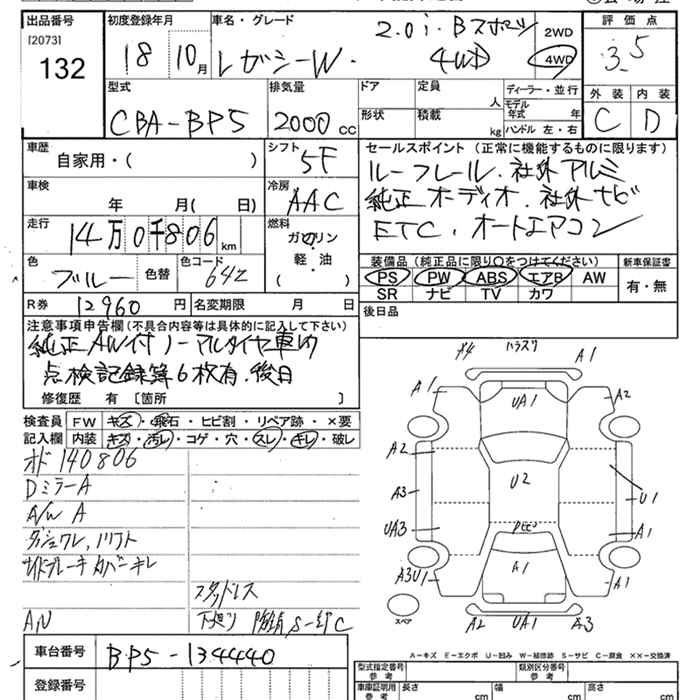 出品番号
[2073]
132
初度登録年月
18 10月
車名・グレード
レガシーW. 2.0i.Bスポーツ
4WD
2WD
4WD
評価点
3.5
外装 内装
C D
型式
CBA-BP5
排気量
2000 cc
ドア
形状
定員
人
積載
kg
ディーラー・並行
モデル年式 年
ハンドル 左・右
車歴
自家用・( )
シフト
5F
セールスポイント (正常に機能するものに限ります)
ルーフレール.社外アルミ
純正オーディオ.社外ナビ
ETC.オートエアコン
車検
年 月( 日)
冷房
AAC
走行
14万0千806km
燃料
ガソリン
軽・油
( )
色
ブルー
色替
色コード
64Z
装備品 (純正品に限り○をつけてください)
PS PW ABS エアB AW
SR ナビ TV カワ
新車保証書
有・無
R券 12960円
名変期限 月 日
後日品
注意事項申告欄(不具合内容等は具体的に記入して下さい)
純正AW付ノーマルタイヤ車内
点検記録簿6枚有.後日
修復歴 有 〔箇所 〕
検査員記入欄
FW キズ・飛石・ヒビ割・リペア跡・×要
内装 キズ・汚レ・コゲ・穴・スレ・キレ・破レ
オド140806
DミラーA
A/W A
サイドブレーキカバーキレ
スタッドレス
S-鈑C
A4 A1
A1 UA1 A2
A2
A3 U2 U1
UA3 A1
A3U1 A1 A1
スペア
A2 UA1 A3
A-キズ E-エクボ U-凹み W-補修跡 S-サビ C-腐食 XX-交換済
車台番号
BP5-134440
登録番号
型式指定番号
参考
類別区分番号
参考
車庫証明用
参考
長さ cm
幅 cm
高さ cm